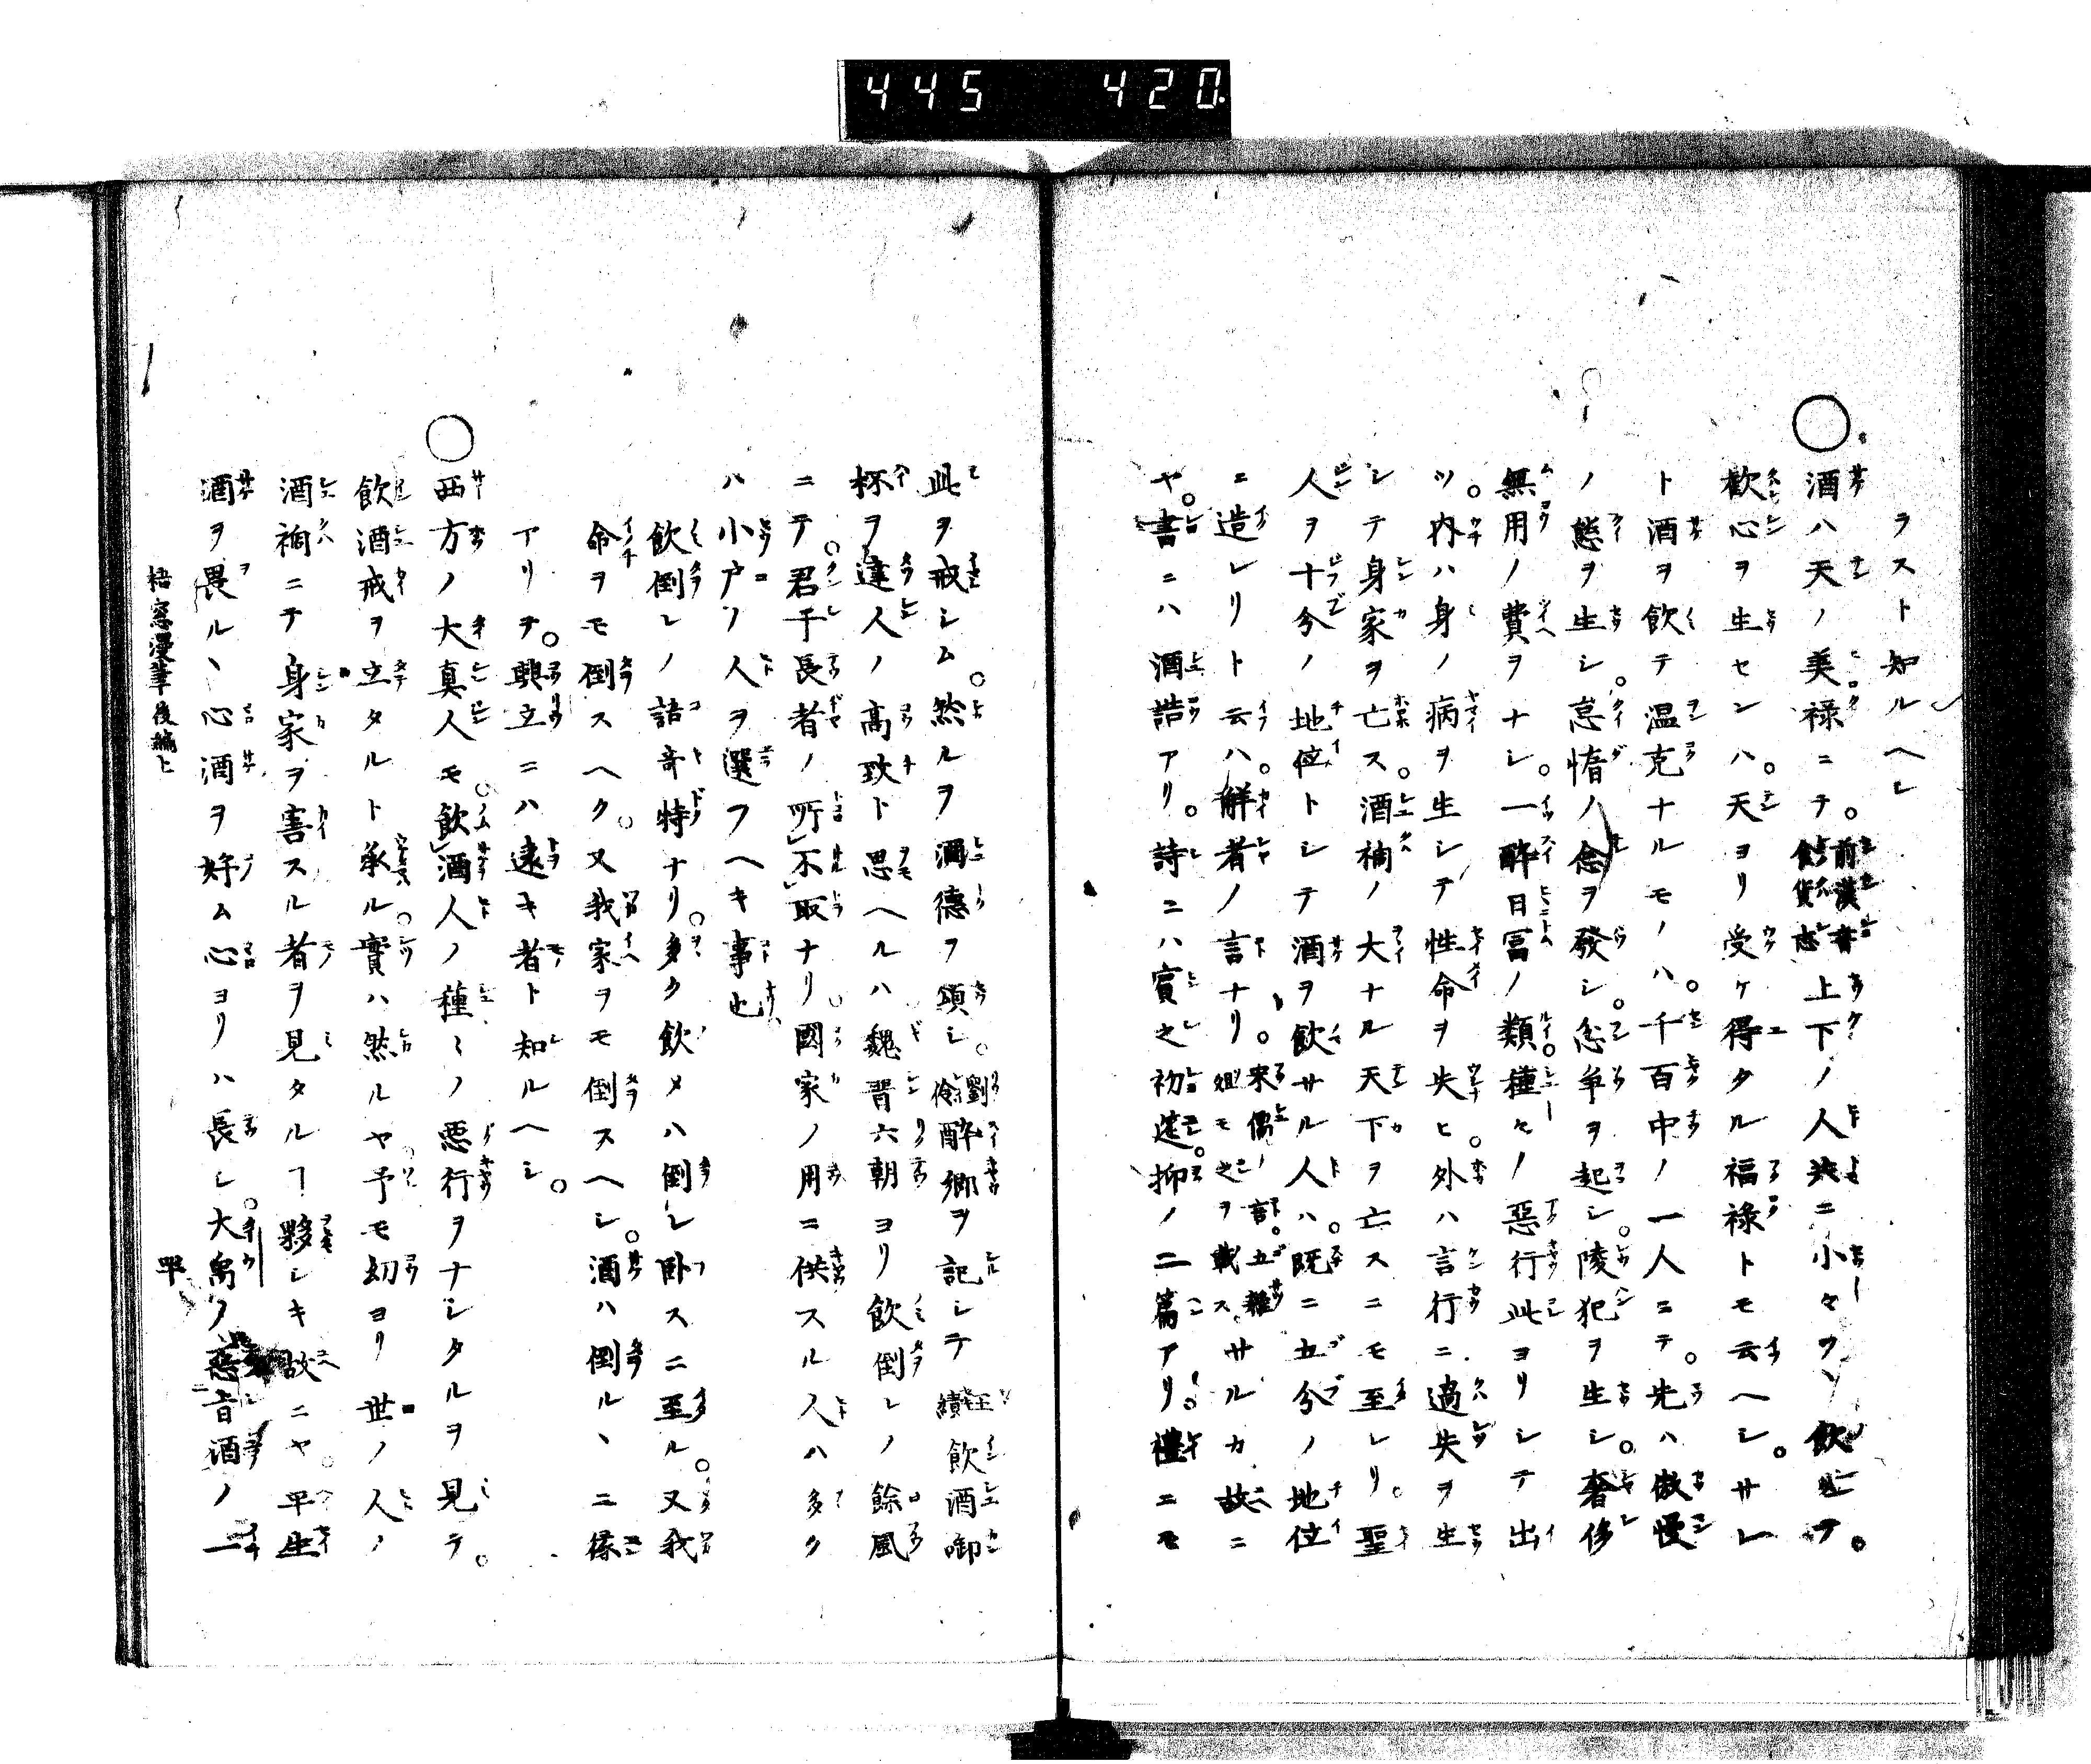 445 420
ラスト知ルヘシ
○酒ハ天ノ美禄ニテ。前漢書食貨志上下ノ人共ニ小々ツヽ飲テ。
歡心ヲ生センハ。天ヨリ受ケ得タル福禄トモ云ヘシ。サレ
ト酒ヲ飲テ温克ナルモノハ。千百中ノ一人ニテ。先ハ傲慢
ノ態ヲ生シ。怠惰ノ念ヲ發シ。忿争ヲ起シ。陵犯ヲ生シ。奢侈
無用ノ費ヲナシ。一醉日冨ノ類。種々ノ惡行此ヨリシテ出
ツ。内ハ身ノ病ヲ生シテ性命ヲ失ヒ。外ハ言行ニ過失ヲ生
シテ身家ヲ亡ス。酒禍ノ大ナル天下ヲ亡スニモ至レリ。聖
人ヲ十分ノ地位トシテ酒ヲ飲サル人ハ。既ニ五分ノ地位
ニ造レリト云ハ。解者ノ言ナリ。宋儒ノ言。五雜俎モ之ヲ載スサルカ故ニ
ヤ。書ニハ酒誥アリ。詩ニハ賓之初筵。抑ノ二篇アリ。禮ニモ
此ヲ戒シム。然ルヲ酒德ヲ頌シ。劉伶醉郷ヲ記シテ王績飲酒啣
杯ヲ達人ノ高致ト思ヘルハ魏晋六朝ヨリ飲倒レノ餘風
ニテ。君子長者ノ所不取ナリ。國家ノ用ニ供スル人ハ多ク
ハ小户ノ人ヲ選フヘキ事也
飲倒レノ語奇特ナリ。多ク飲メハ倒レ卧スニ至ル。又我
命ヲモ倒スヘク。又我家ヲモ倒スヘシ。酒ハ倒ルヽニ縁
アリテ。興立ニハ遠キ者ト知ルヘシ。
○西方ノ大真人モ飲酒人ノ種々ノ悪行ヲナシタルヲ見テ。
飲酒戒ヲ立タルト承ル。實ハ然ルヤ予モ幼ヨリ世ノ人ノ
酒禍ニテ身家ヲ害スル者ヲ見タルヿ夥シキ故ニヤ。平生
酒ヲ畏ルヽ心酒ヲ好ム心ヨリハ長シ。大禹ノ惡旨酒ノ一
梧窓漫筆後編上